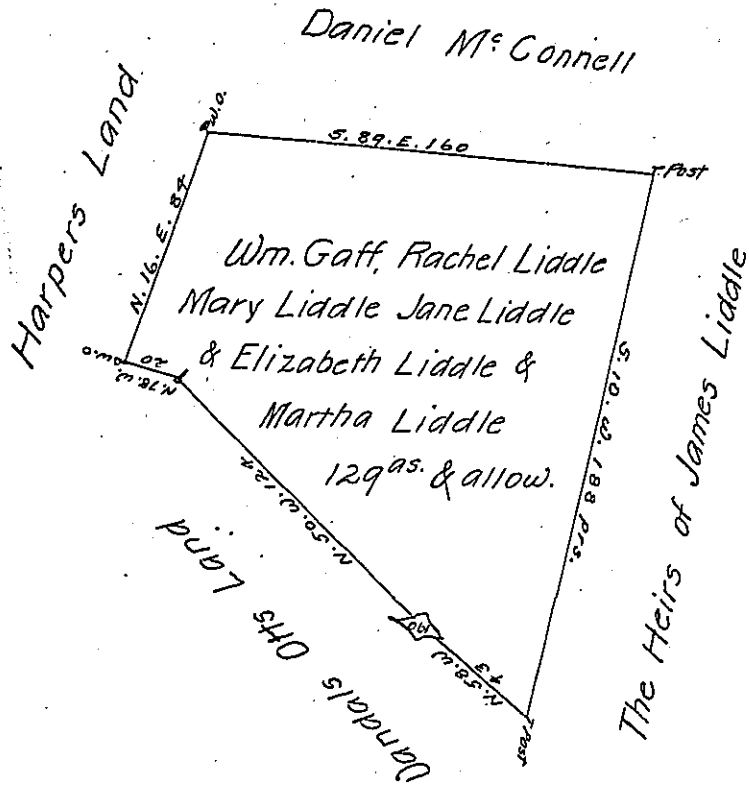 Daniel Mc Connell
Harpers Land.
w.o.
S. 89. E. 160
Post
N. 16. E. 84
Wm. Gaff, Rachel Liddle
Mary Liddle Jane Liddle
& Elizabeth Liddle &
Martha Liddle
129 as. & allow.
w.o
N. 78. W. 20
S. 10. W. 188 prs.
The Heirs of James Liddle
N. 50. W. 124
Land
N. 58. W 43
Post